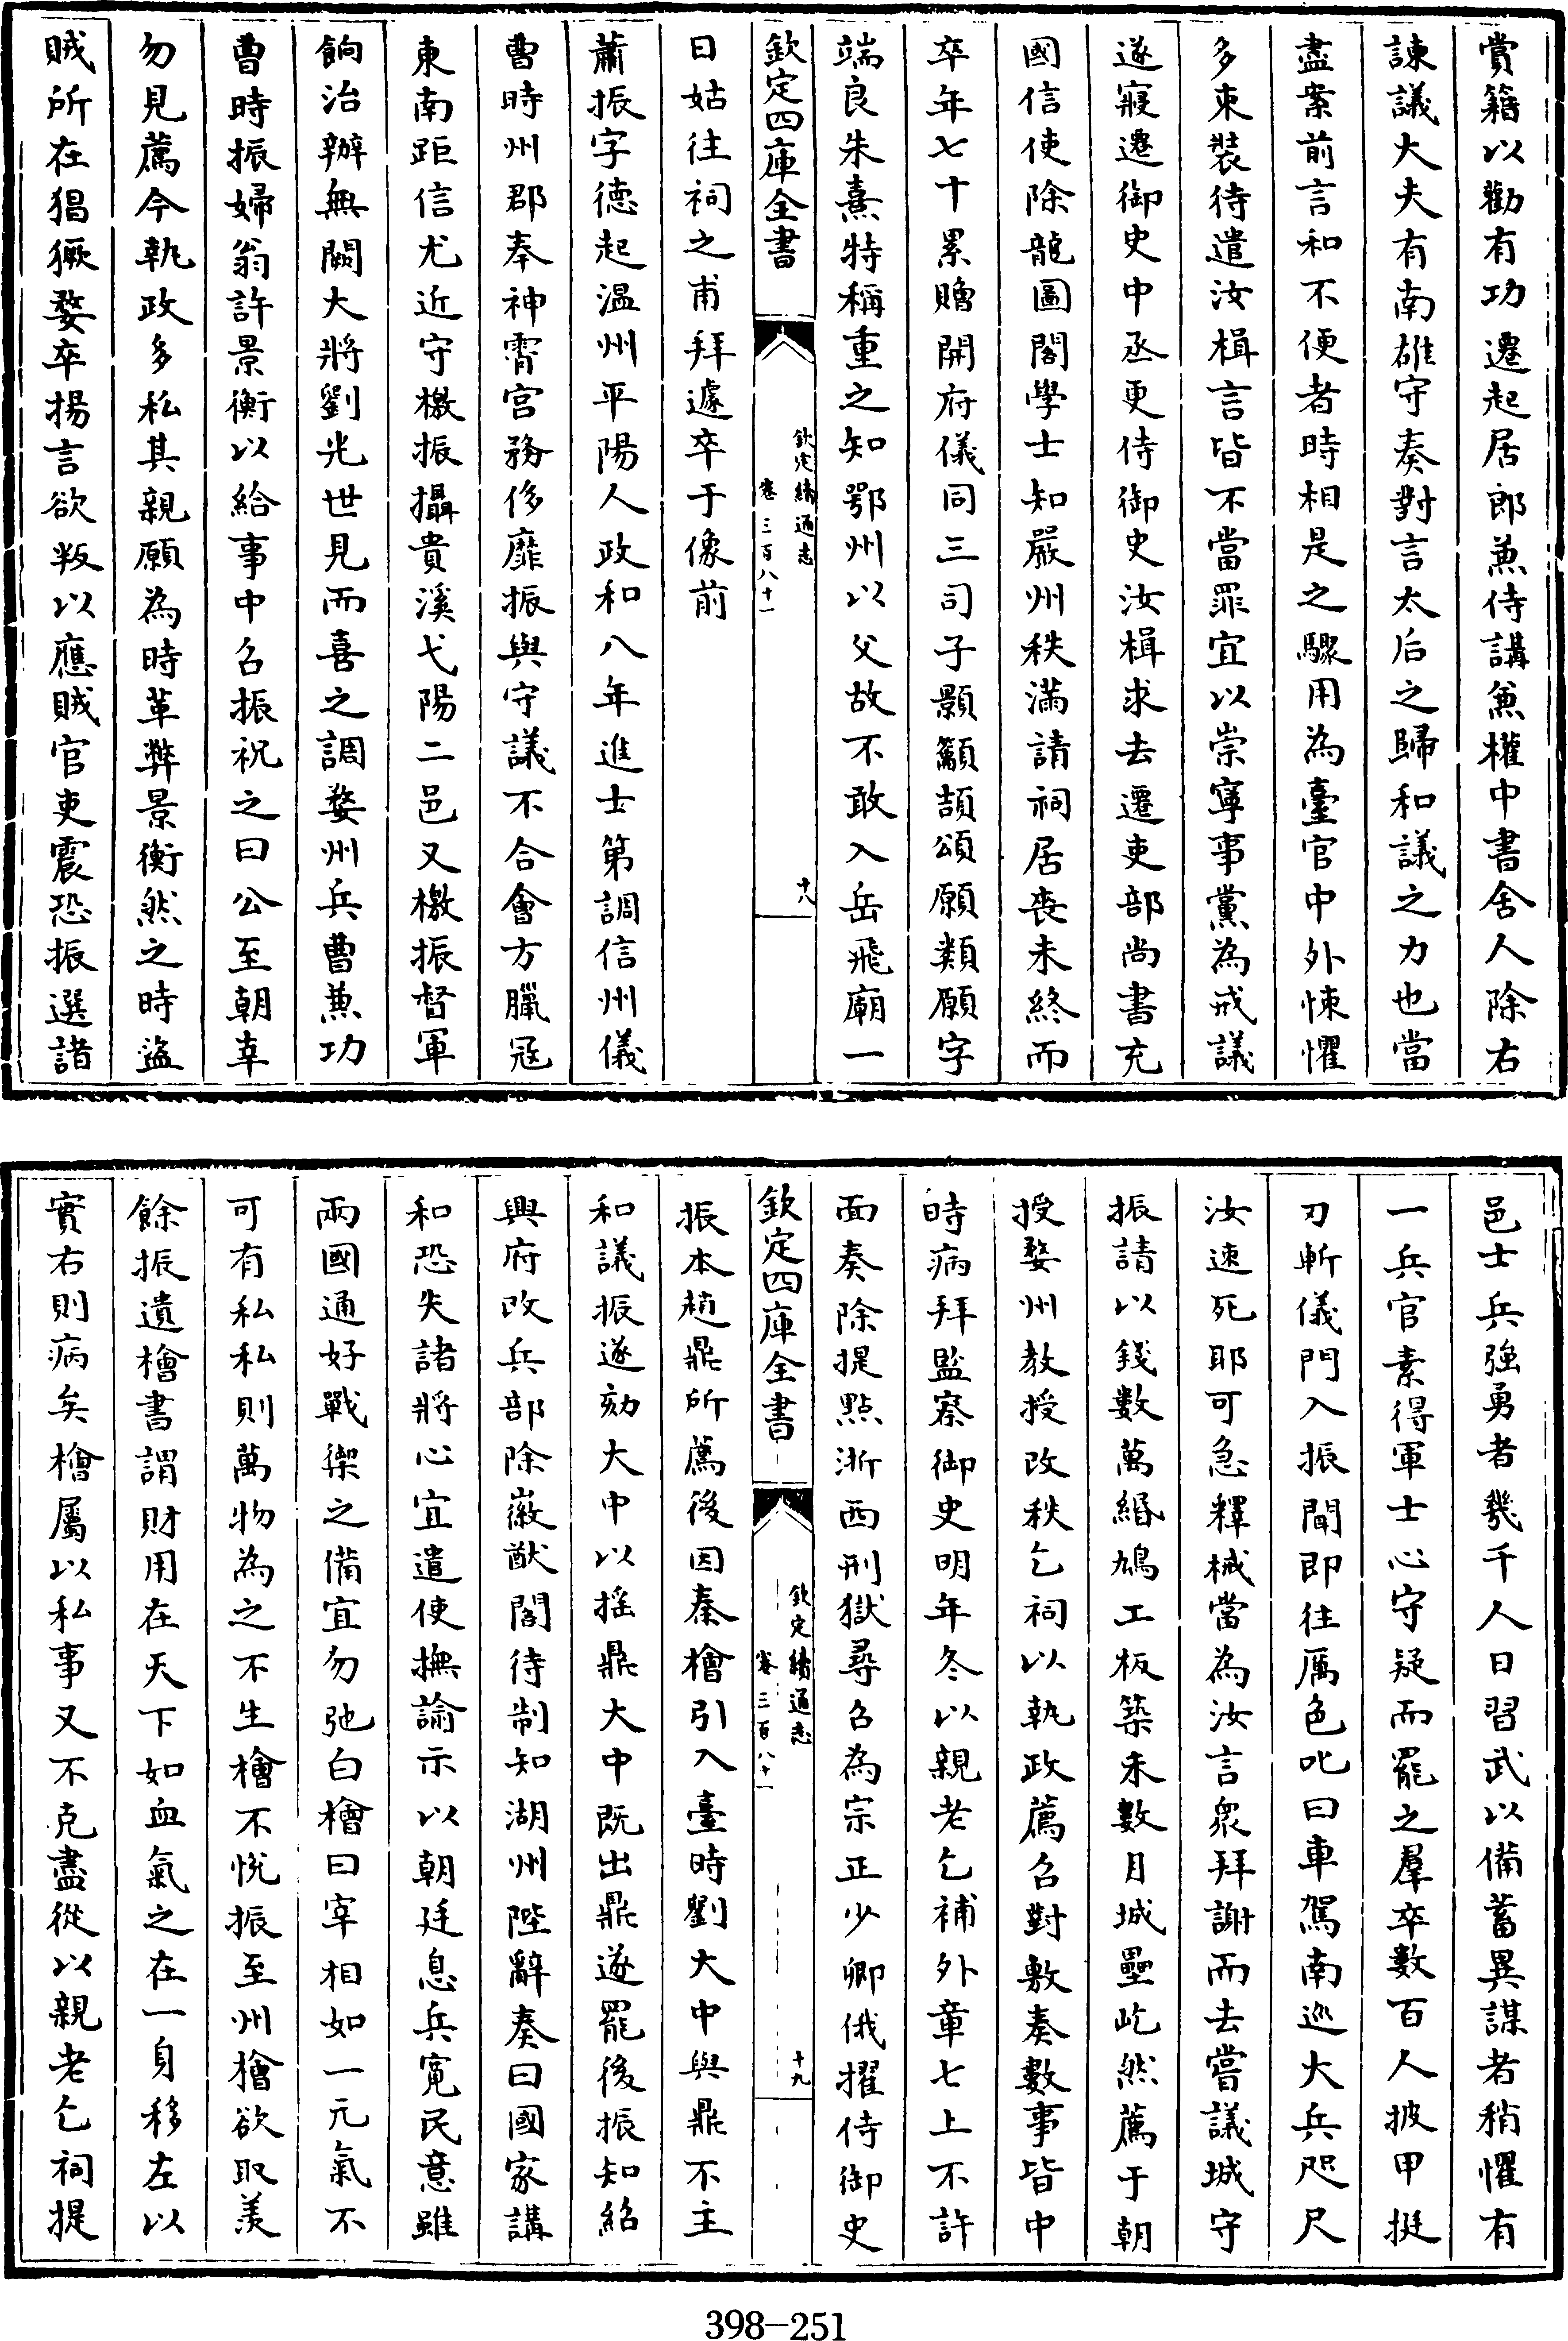 賞籍以勸有功遷起居郎兼侍講兼權中書舍人除右
諫議大夫有南雄守奏對言太后之歸和議之力也當
盡案前言和不便者時相是之驟用為臺官中外悚懼
多束裝待遣汝楫言皆不當罪宜以崇寧事黨為戒議
遂寢遷御史中丞更侍御史汝楫求去遷吏部尚書充
國信使除龍圖閣學士知嚴州秩滿請祠居喪未終而
卒年七十累贈開府儀同三司子顥籲頡頌願類願字
端良朱熹特稱重之知鄂州以父故不敢入岳飛廟一
欽定四庫全書
欽定續通志
卷三百八十一
十八
日姑往祠之甫拜遽卒于像前
蕭振字德起溫州平陽人政和八年進士第調信州儀
曹時州郡奉神霄宮務侈靡振與守議不合會方臘冦
東南距信尤近守檄振攝貴溪弋陽二邑又檄振督軍
餉治辦無闕大將劉光世見而喜之調婺州兵曹兼功
曹時振婦翁許景衡以給事中召振祝之曰公至朝幸
勿見薦今執政多私其親願為時革弊景衡然之時盜
賊所在猖獗婺卒揚言欲叛以應賊官吏震恐振選諸
邑士兵強勇者幾千人日習武以備蓄異謀者稍懼有
一兵官素得軍士心守疑而罷之羣卒數百人披甲挺
刃斬儀門入振聞即往厲色叱曰車駕南巡大兵咫尺
汝速死耶可急釋械當為汝言衆拜謝而去嘗議城守
振請以錢數萬緡鳩工板築未數月城壘屹然薦于朝
授婺州教授改秩乞祠以執政薦召對敷奏數事皆中
時病拜監察御史明年冬以親老乞補外章七上不許
面奏除提點浙西刑獄尋召為宗正少卿俄擢侍御史
欽定四庫全書
欽定續通志
卷三百八十一
十九
振本趙鼎所薦後因秦檜引入臺時劉大中與鼎不主
和議振遂劾大中以摇鼎大中既出鼎遂罷後振知紹
興府改兵部除徽猷閣待制知湖州陛辭奏曰國家講
和恐失諸將心宜遣使撫諭示以朝廷息兵寛民意雖
兩國通好戰禦之備宜勿弛白檜曰宰相如一元氣不
可有私私則萬物為之不生檜不悅振至州檜欲取羡
餘振遺檜書謂財用在天下如血氣之在一身移左以
實右則病矣檜屬以私事又不克盡從以親老乞祠提
398-251